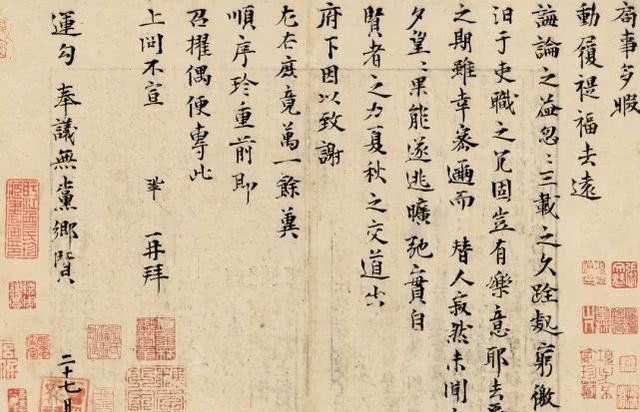 局事多暇
動履禔福去遠
誨論之益忽〻三載之久跧處窮徼
汩于吏職之冗固豈有樂意耶去
之期雖幸密邇而替人寂然未聞
夕望〻果能遂逃曠弛實自
賢者之力夏秋之交道出
府下因以致謝
左右庶竟萬一餘冀
順序珍重前即
召擢偶便專此
上問不宣 鞏 再拜
運勾奉議無黨鄉賢 二十七日